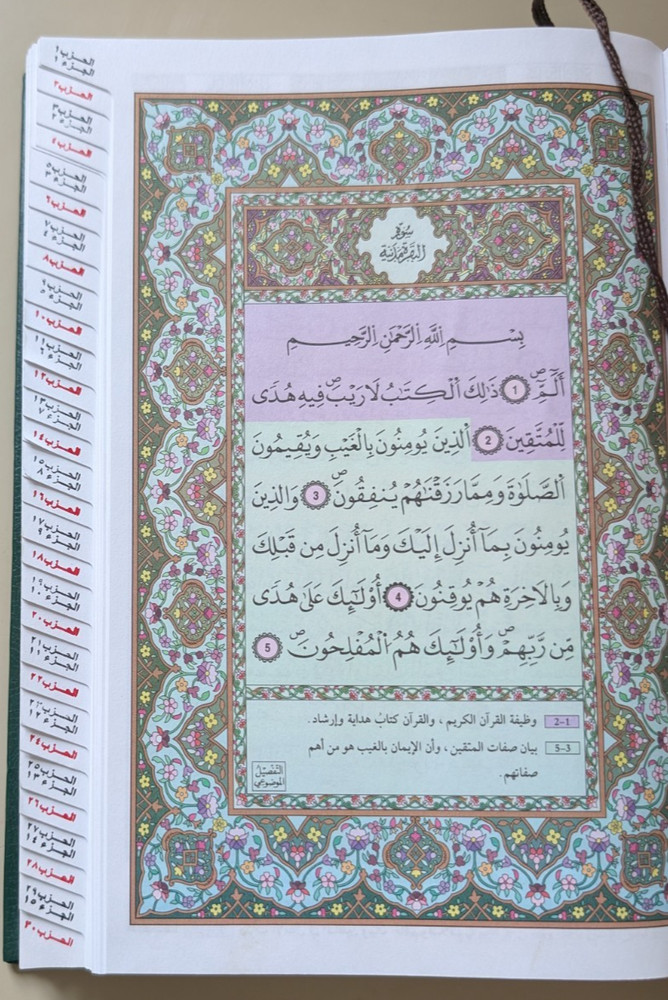 سُورَةُ
البَقَرَةِ مَدَنِيَّة
بِسْمِ اِ۬للَّهِ اِ۬لرَّحْمَٰنِ اِ۬لرَّحِيمِ
أَلَٓمِّٓۖ 1 ذَٰلِكَ اَ۬لْكِتَٰبُ لَا رَيْبَۖ فِيهِ هُدىٗ
لِّلْمُتَّقِينَ 2 اَ۬لذِينَ يُومِنُونَ بِالْغَيْبِ وَيُقِيمُونَ
اَ۬لصَّلَوٰةَ وَمِمَّا رَزَقْنَٰهُمْ يُنفِقُونَۖ 3 وَالذِينَ
يُومِنُونَ بِمَآ أُنزِلَ إِلَيْكَ وَمَآ أُنزِلَ مِن قَبْلِكَ
وَبِالَاخِرَةِ هُمْ يُوقِنُونَ 4 أُوْلَٰٓئِكَ عَلَىٰ هُدىٗ
مِّن رَّبِّهِمْۖ وَأُوْلَٰٓئِكَ هُمُ اُ۬لْمُفْلِحُونَۖ 5
1-2 وظيفة القرآن الكريم، والقرآن كتابُ هداية وإرشاد.
3-5 بيان صفات المتقين، وأن الإيمان بالغيب هو من أهم
صفاتهم.
التَّفصيلُ
الموضوعي
الحزب ١
الجزء ١
الحزب ٢
الحزب ٣
الجزء ٢
الحزب ٤
الحزب ٥
الجزء ٣
الحزب ٦
الحزب ٧
الجزء ٤
الحزب ٨
الحزب ٩
الجزء ٥
الحزب ١٠
الحزب ١١
الجزء ٦
الحزب ١٢
الحزب ١٣
الجزء ٧
الحزب ١٤
الحزب ١٥
الجزء ٨
الحزب ١٦
الحزب ١٧
الجزء ٩
الحزب ١٨
الحزب ١٩
الجزء ١٠
الحزب ٢٠
الحزب ٢١
الجزء ١١
الحزب ٢٢
الحزب ٢٣
الجزء ١٢
الحزب ٢٤
الحزب ٢٥
الجزء ١٣
الحزب ٢٦
الحزب ٢٧
الجزء ١٤
الحزب ٢٨
الحزب ٢٩
الجزء ١٥
الحزب ٣٠